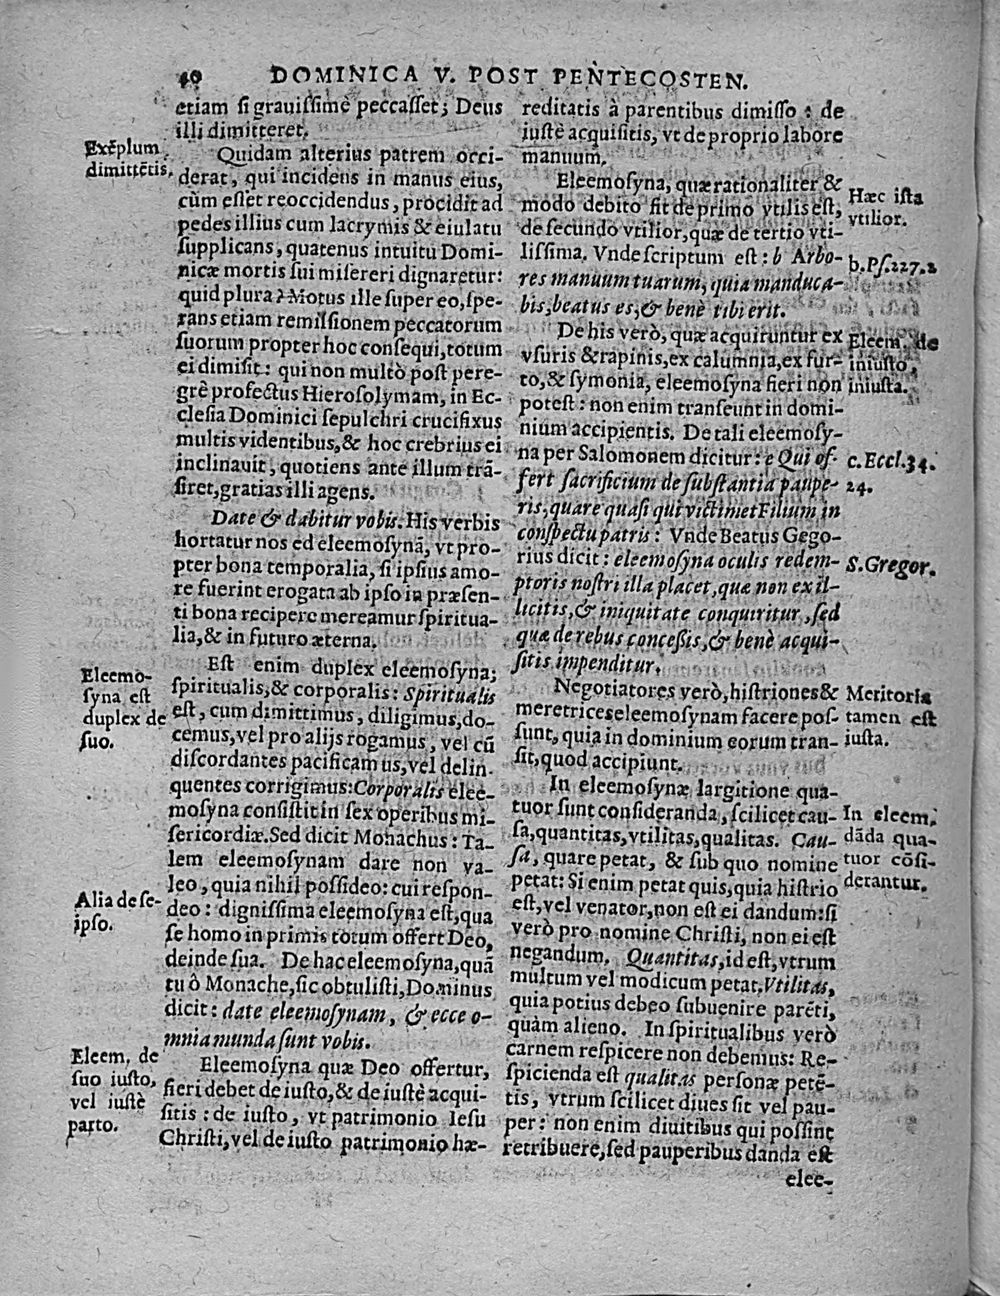 40 DOMINICA V. POST PENTECOSTEN.
etiam si grauissimè peccasset; Deus
illi dimitteret.
Exẽplum
dimittẽtis.
Quidam alterius patrem occi-
derat, qui incidens in manus eius,
cùm esset reoccidendus, procidit ad
pedes illius cum lacrymis & eiulatu
supplicans, quatenus intuitu Domi-
nicæ mortis sui misereri dignaretur:
quid plura? Motus ille super eo, spe-
rans etiam remissionem peccatorum
suorum propter hoc consequi, totum
ei dimisit: qui non multò post pere-
grè profectus Hierosolymam, in Ec-
clesia Dominici sepulchri crucifixus
multis videntibus, & hoc crebrius ei
inclinauit, quotiens ante illum trã-
siret, gratias illi agens.
Date & dabitur vobis. His verbis
hortatur nos ed eleemosynã, vt pro-
pter bona temporalia, si ipsius amo-
re fuerint erogata ab ipso in præsen-
ti bona recipere mereamur spiritua-
lia, & in futuro æterna.
Eleemo-
syna est
duplex de
suo.
Est enim duplex eleemosyna;
spiritualis, & corporalis: Spiritualis
est, cum dimittimus, diligimus, do-
cemus, vel pro alijs rogamus, vel cũ
discordantes pacificamus, vel delin-
quentes corrigimus: Corporalis elee-
mosyna consistit in sex operibus mi-
sericordiæ. Sed dicit Monachus: Ta-
lem eleemosynam dare non va-
leo, quia nihil possideo: cui respon-
Alia de se-
ipso.
deo: dignissima eleemosyna est, qua
se homo in primis totum offert Deo,
deinde sua. De hac eleemosyna, quã
tu ô Monache, sic obtulisti, Dominus
dicit: date eleemosynam, & ecce o-
mnia munda sunt vobis.
Eleem. de
suo iusto,
vel iustè
parto.
Eleemosyna quæ Deo offertur,
fieri debet de iusto, & de iustè acqui-
sitis: de iusto, vt patrimonio Iesu
Christi, vel de iusto patrimonio hæ-
reditatis à parentibus dimisso: de
iustè acquisitis, vt de proprio labore
manuum.
Eleemosyna, quæ rationaliter &
modo debito fit de primo vtilis est,
de secundo vtilior, quæ de tertio vti-
lissima. Vnde scriptum est: b Arbo-
res manuum tuarum, quia manduca-
bis, beatus es, & benè tibi erit.
Hæc ista
vtilior.
b. Ps. 227.2
De his verò, quæ acquiruntur ex
vsuris & rapinis, ex calumnia, ex fur-
to, & symonia, eleemosyna fieri non
potest: non enim transeunt in domi-
nium accipientis. De tali eleemosy-
na per Salomonem dicitur: e Qui of-
fert sacrificium de substantia paupe-
ris, quare quasi qui victimet Filium in
conspectu patris: Vnde Beatus Gego-
rius dicit: eleemosyna oculis redem-
ptoris nostri illa placet, quæ non ex il-
licitis, & iniquitate conquiritur, sed
quæ de rebus concessis, & benè acqui-
sitis impenditur.
Eleem. de
iniusto,
iniusta.
c. Eccl. 34.
24.
S. Gregor.
Negotiatores verò, histriones &
meretrices eleemosynam facere pos-
sunt, quia in dominium eorum tran-
sit, quod accipiunt.
Meritoria
tamen est
iusta.
In eleemosynæ largitione qua-
tuor sunt consideranda, scilicet cau-
sa, quantitas, vtilitas, qualitas. Cau-
sa, quare petat, & sub quo nomine
petat: Si enim petat quis, quia histrio
est, vel venator, non est ei dandum: si
verò pro nomine Christi, non ei est
negandum. Quantitas, id est, vtrum
multum vel modicum petat. Vtilitas,
quia potius debeo subuenire parẽti,
quàm alieno. In spiritualibus verò
carnem respicere non debemus: Re-
spicienda est qualitas personæ petẽ-
tis, vtrum scilicet diues sit vel pau-
per: non enim diuitibus qui possint
retribuere, sed pauperibus danda est
In eleem.
dãda qua-
tuor cõsi-
derantur.
elee-